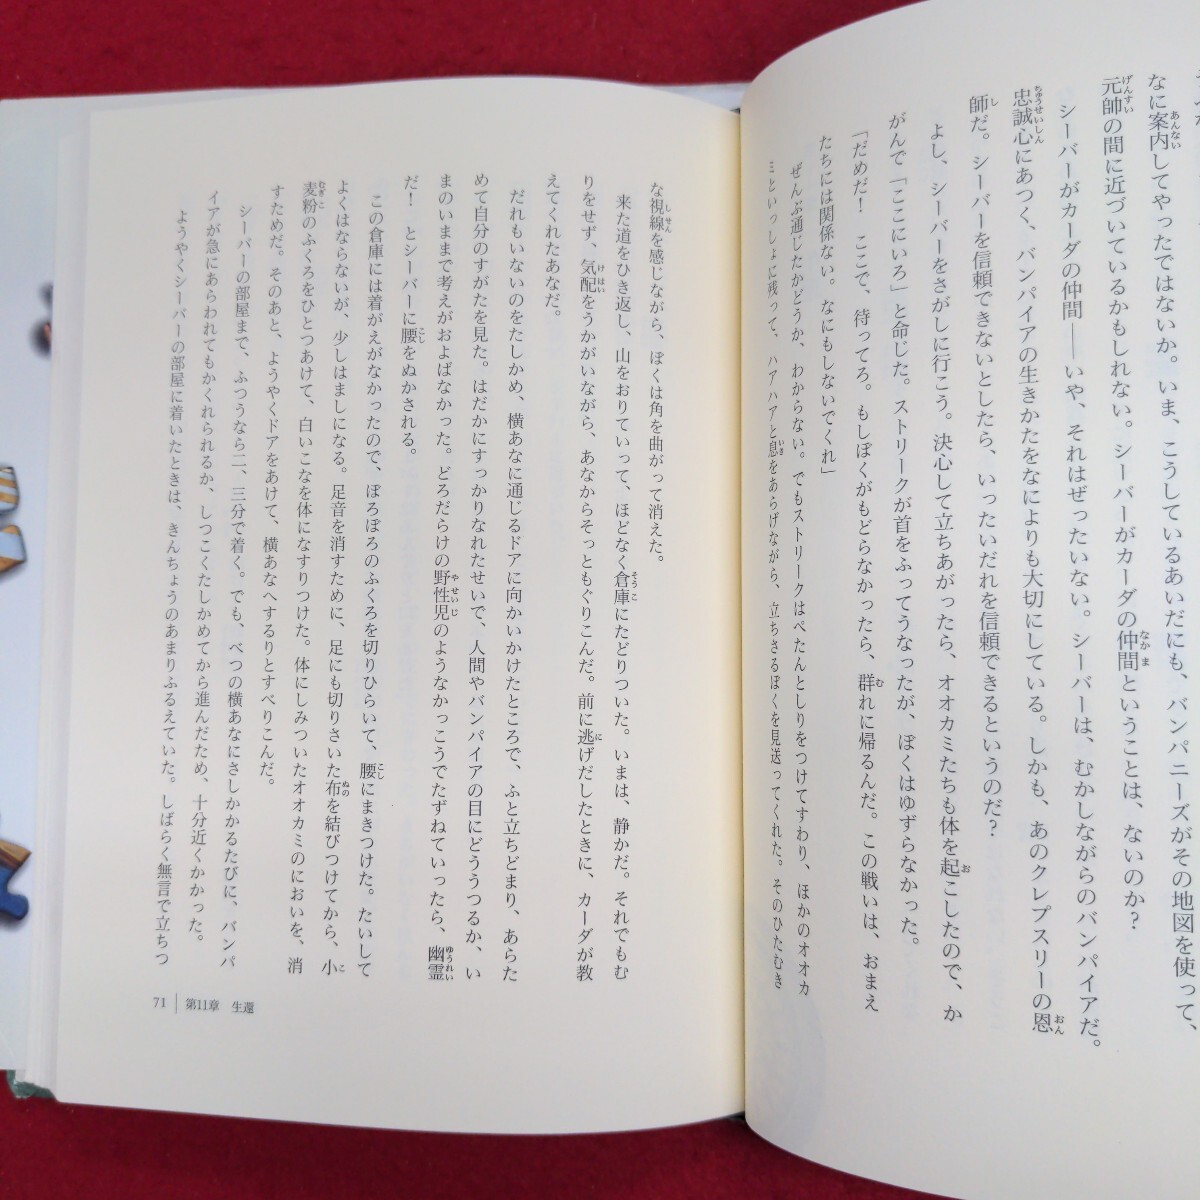 なに案内してやったではないか。いま、こうしているあいだにも、バンパニーズがその地図を使って、
元帥の間に近づいているかもしれない。シーバーがカーダの仲間ということは、ないのか?
シーバーがカーダの仲間――いや、それはぜったいない。シーバーは、むかしながらのバンパイアだ。
忠誠心にあつく、バンパイアの生きかたをなによりも大切にしている。しかも、あのクレプスリーの恩
師だ。シーバーを信頼できないとしたら、いったいだれを信頼できるというのだ?
よし、シーバーをさがしに行こう。決心して立ちあがったら、オオカミたちも体を起こしたので、か
がんで「ここにいろ」と命じた。ストリークが首をふってうなったが、ぼくはゆずらなかった。
「だめだ! ここで、待ってろ。もしぼくがもどらなかったら、群れに帰るんだ。この戦いは、おまえ
たちには関係ない。なにもしないでくれ」
ぜんぶ通じたかどうか、わからない。でもストリークはぺたんとしりをつけてすわり、ほかのオオカ
ミといっしょに残って、ハアハアと息をあらげながら、立ちさるぼくを見送ってくれた。そのひたむき
な視線を感じながら、ぼくは角を曲がって消えた。
来た道をひき返し、山をおりていって、ほどなく倉庫にたどりついた。いまは、静かだ。それでもむ
りをせず、気配をうかがいながら、あなからそっともぐりこんだ。前に逃げだしたときに、カーダが教
えてくれたあなだ。
だれもいないのをたしかめ、横あなに通じるドアに向かいかけたところで、ふと立ちどまり、あらた
めて自分のすがたを見た。はだかにすっかりなれたせいで、人間やバンパイアの目にどううつるか、い
まのいままで考えがおよばなかった。どろだらけの野性児のようなかっこうでたずねていったら、幽霊
だ! とシーバーに腰をぬかされる。
この倉庫には着がえがなかったので、ぼろぼろのふくろを切りひらいて、腰にまきつけた。たいして
よくはならないが、少しはましになる。足音を消すために、足にも切りさいた布を結びつけてから、小
麦粉のふくろをひとつあけて、白いこなを体になすりつけた。体にしみついたオオカミのにおいを、消
すためだ。そのあと、ようやくドアをあけて、横あなへするりとすべりこんだ。
シーバーの部屋まで、ふつうなら二、三分で着く。でも、べつの横あなにさしかかるたびに、バンパ
イアが急にあらわれてもかくれられるか、しつこくたしかめてから進んだため、十分近くかかった。
ようやくシーバーの部屋に着いたときは、きんちょうのあまりふるえていた。しばらく無言で立ちつ
71 第11章 生還